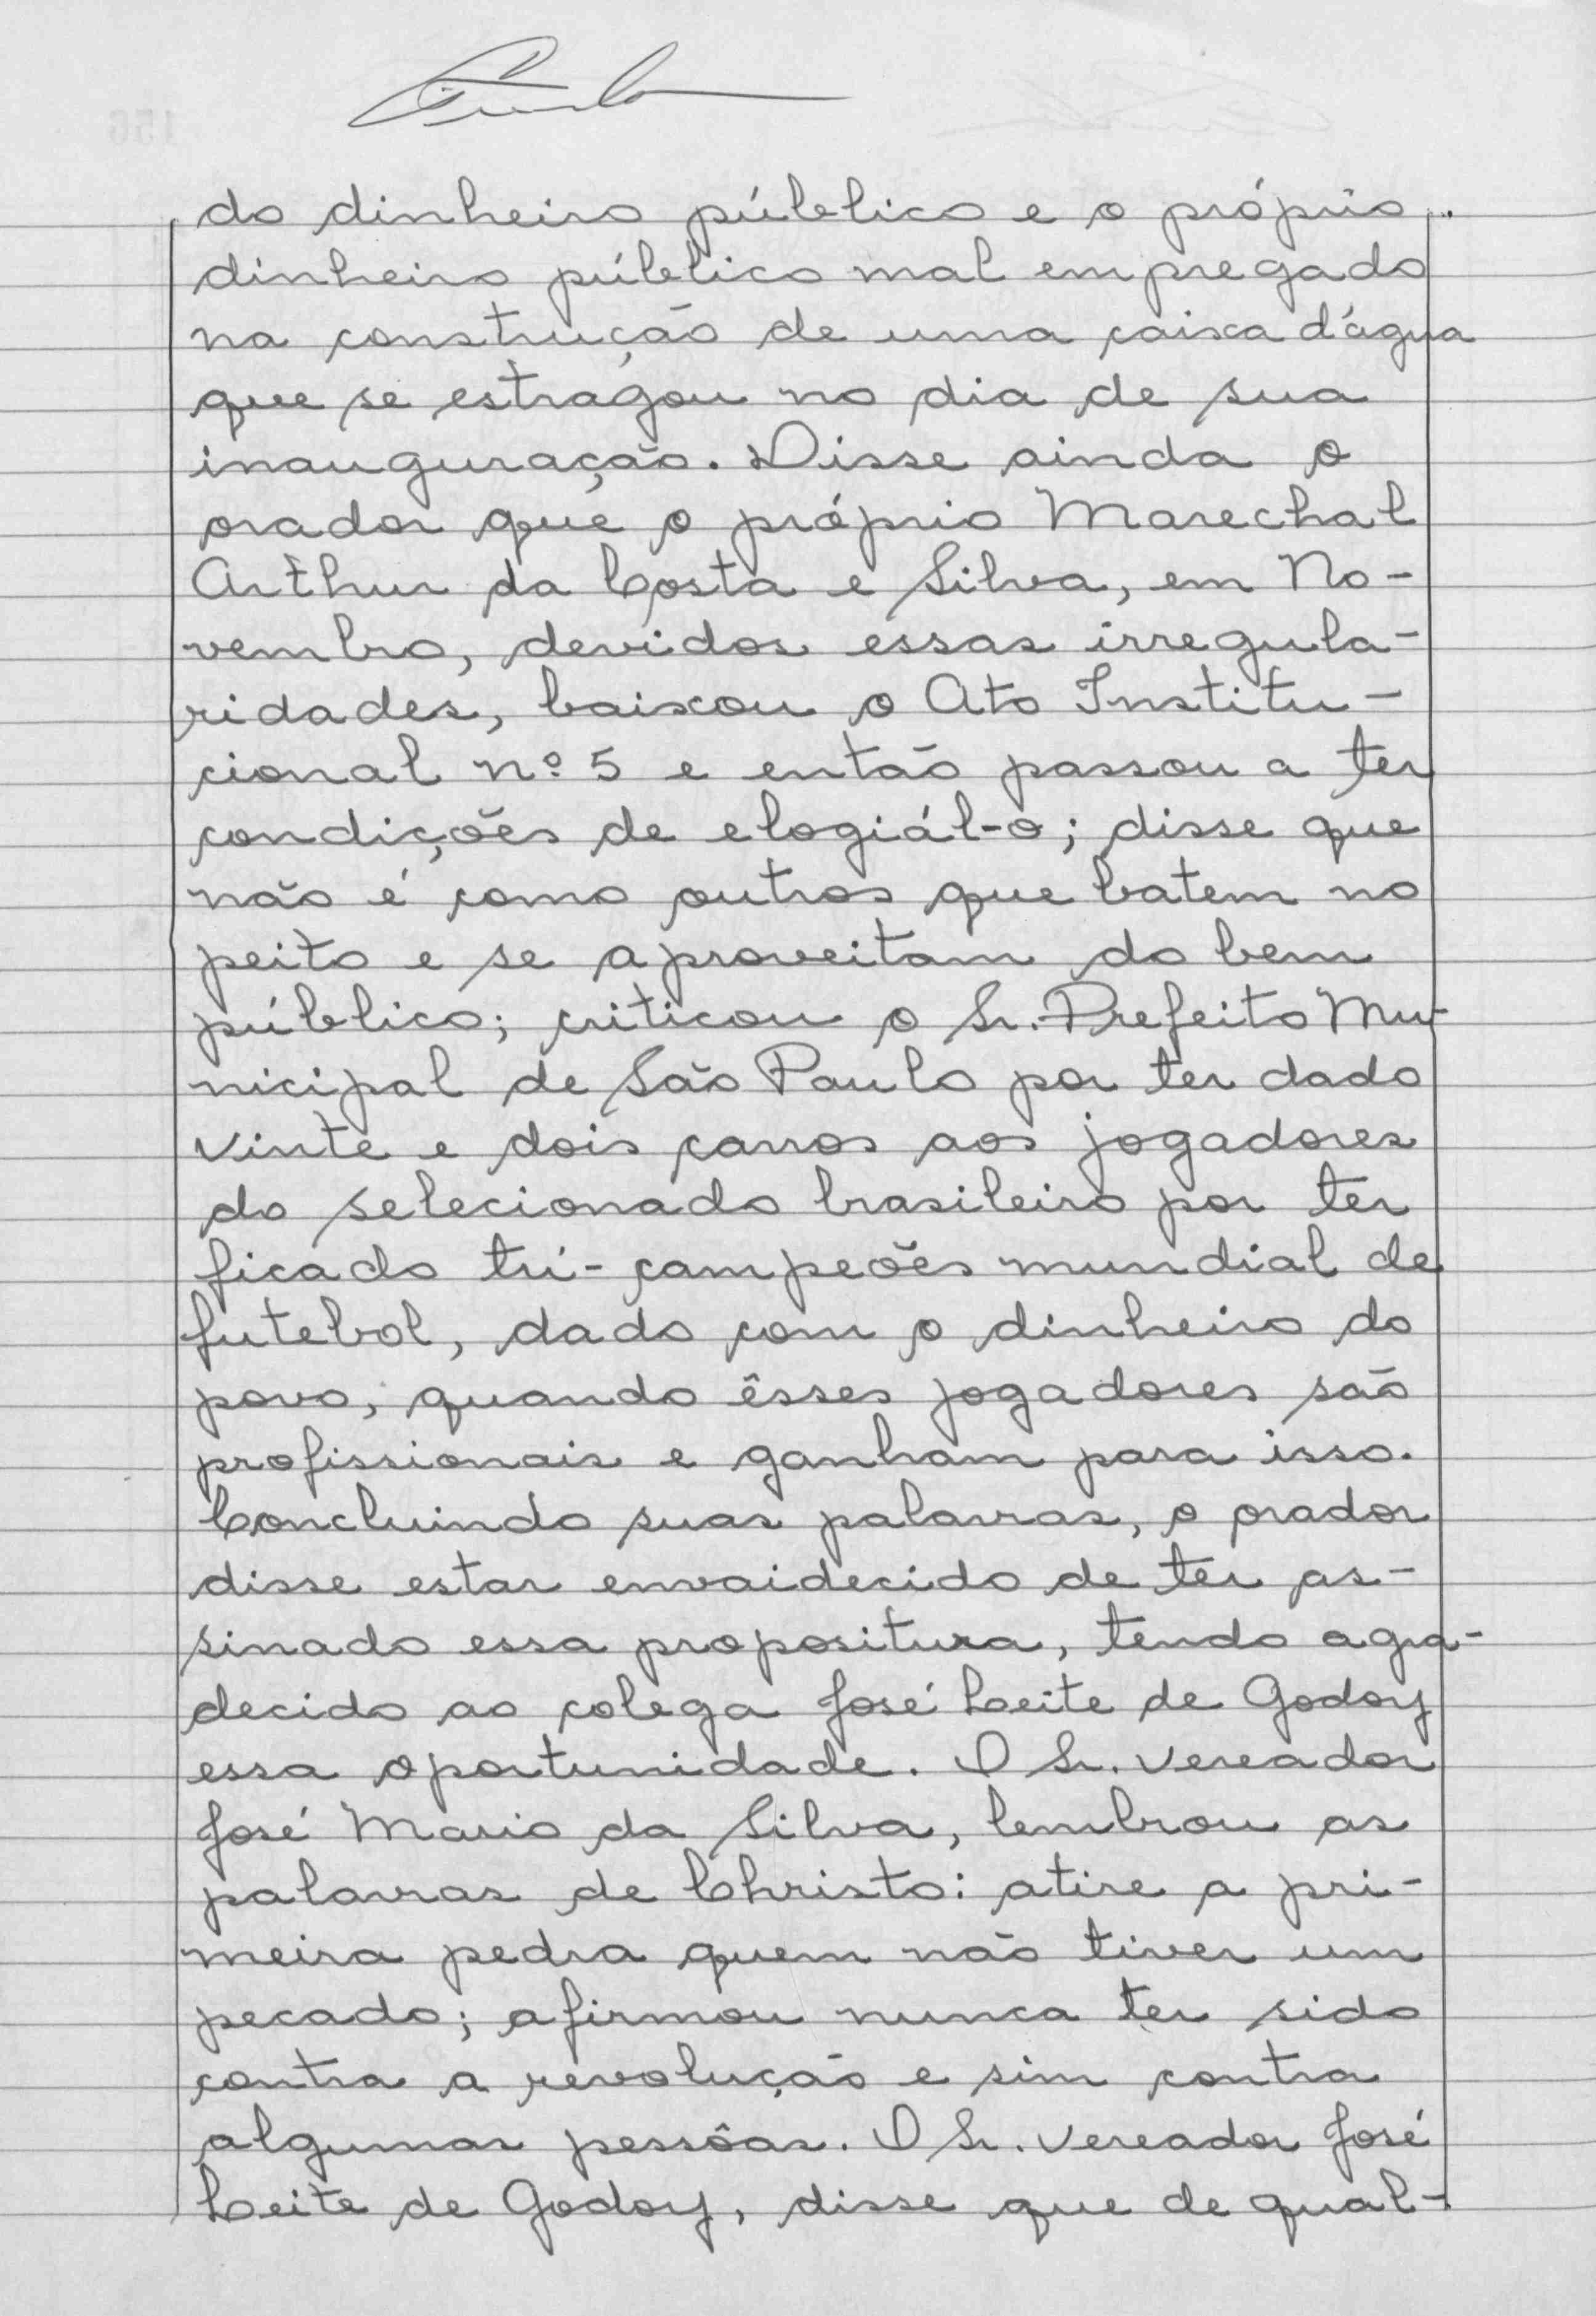 do dinheiro público e o próprio
dinheiro público mal empregado
na construção de uma caixa d'água
que se estragou no dia de sua
inauguração. Disse ainda o
orador que o próprio Marechal
Arthur da Costa e Silva, em No-
vembro, devidos essas irregula-
ridades, baixou o Ato Institu-
cional nº 5 e então passou a ter
condições de elogiál-o; disse que
não é como outros que batem no
peito e se aproveitam do bem
público; criticou o Sr. Prefeito Mu-
nicipal de São Paulo por ter dado
vinte e dois carros aos jogadores
do selecionado brasileiro por ter
ficado tri-campeões mundial de
futebol, dado com o dinheiro do
povo, quando êsses jogadores são
profissionais e ganham para isso.
Concluindo suas palavras, o orador
disse estar envaidecido de ter as-
sinado essa propositura, tendo agra-
decido ao colega José Leite de Godoy
essa oportunidade. O Sr. Vereador
José Mario da Silva, lembrou as
palavras de Christo: atire a pri-
meira pedra quem não tiver um
pecado; afirmou nunca ter sido
contra a revolução e sim contra
algumas pessôas. O Sr. Vereador José
Leite de Godoy, disse que de qual-